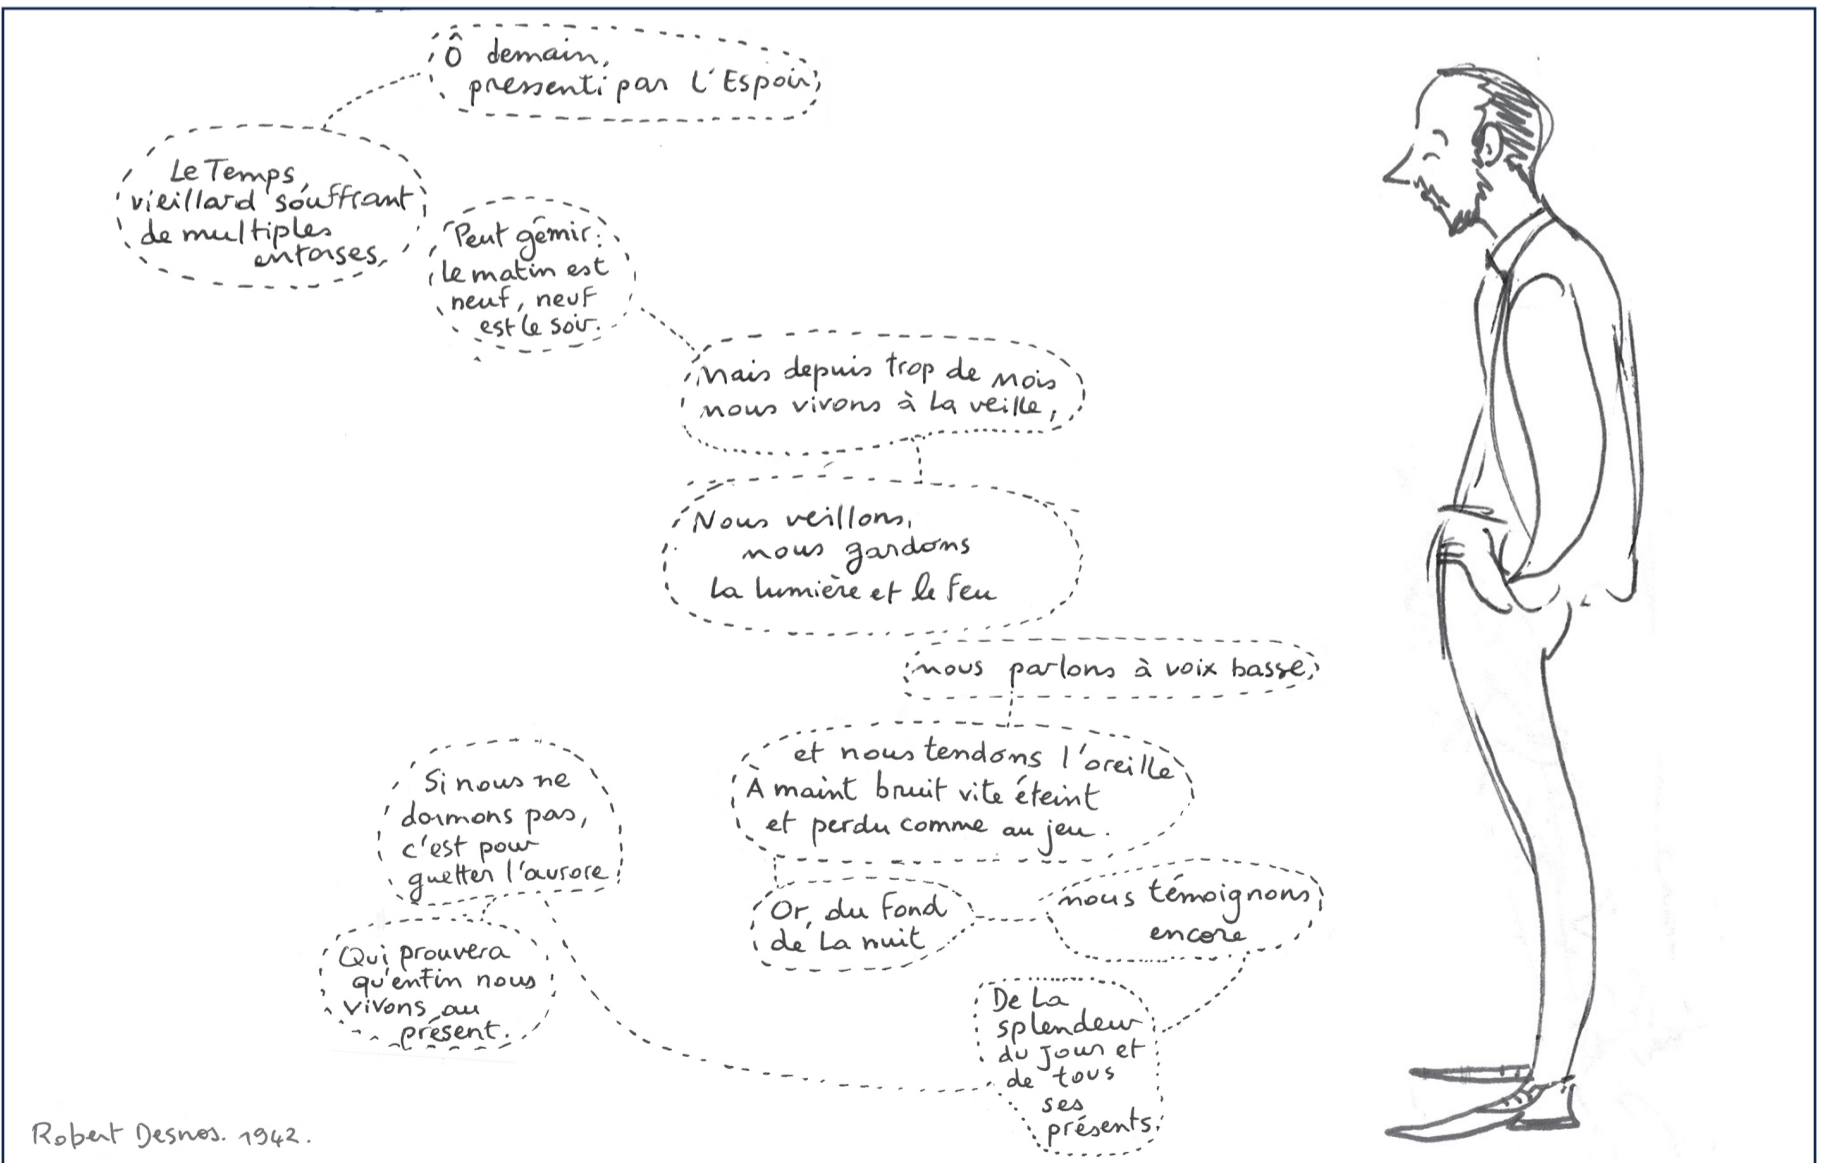 Ô demain,
pressenti par L'Espoir,
Le Temps,
vieillard souffrant
de multiples
entorses,
Peut gémir:
le matin est
neuf, neuf
est le soir.
Mais depuis trop de mois
nous vivons à la veille,
Nous veillons,
nous gardons
La lumière et le feu
nous parlons à voix basse,
et nous tendons l'oreille
A maint bruit vite éteint
et perdu comme au jeu.
Or, du fond
de la nuit
nous témoignons
encore
De la
splendeur
du jour et
de tous
ses
présents.
Si nous ne
dormons pas,
c'est pour
guetter l'aurore
Qui prouvera
qu'enfin nous
vivons au
présent.
Robert Desnos. 1942.